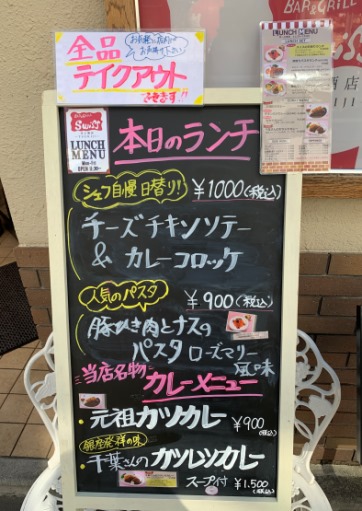 BAR & GRILL
全品
テイクアウト
できます!!
お気軽に店内で
お声掛け下さい
LUNCH MENU
LUNCH
MENU
Mon-Fri
本日のランチ
シェフ自慢 日替り! ¥1000(税込)
チーズチキンソテー
& カレーコロッケ
人気のパスタ ¥900(税込)
豚ひき肉とナスの
パスタ ローズマリー
風味
当店名物 カレーメニュー
・元祖カツカレー ¥900
(税込)
銀座発祥の味
・千葉さんのカツレツカレー
スープ付 ¥1.500
(税込)